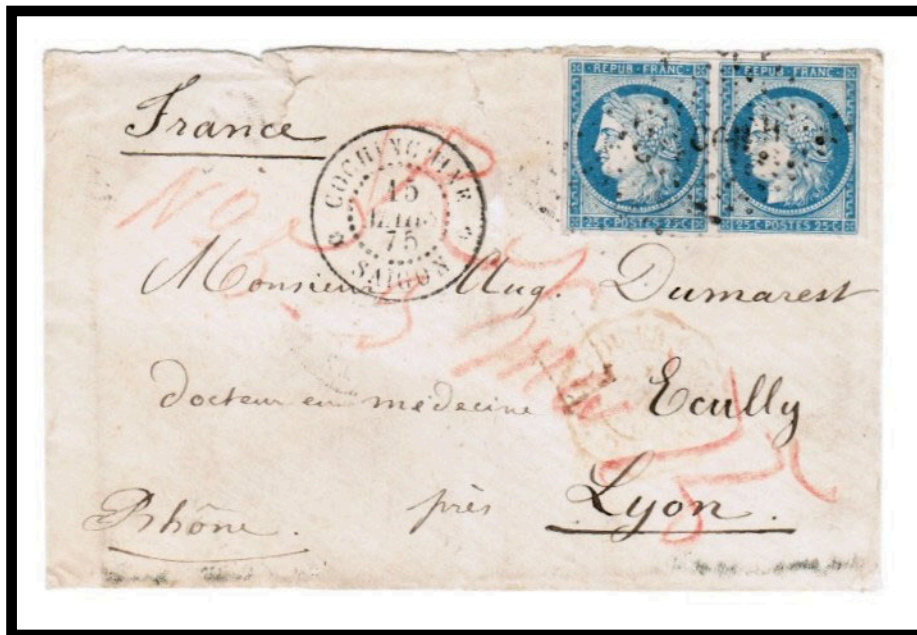 REPUB · FRANC · REPUB · FRANC ·
25 C POSTES 25 C 25 C POSTES 25 C
France
COCHINCHINE
15
MARS
75
SAIGON
Monsieur Aug. Dumarest
docteur en médecine Ecully
Rhône. près Lyon.